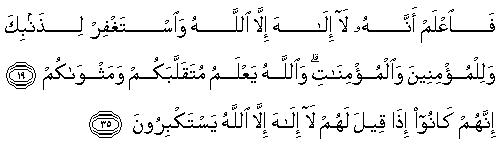 فَٱعْلَمْ أَنَّهُۥ لَآ إِلَـٰهَ إِلَّا ٱللَّهُ وَٱسْتَغْفِرْ لِذَنۢبِكَ
وَلِلْمُؤْمِنِينَ وَٱلْمُؤْمِنَـٰتِ ۗ وَٱللَّهُ يَعْلَمُ مُتَقَلَّبَكُمْ وَمَثْوَىٰكُمْ ١٩
إِنَّهُمْ كَانُوٓا۟ إِذَا قِيلَ لَهُمْ لَآ إِلَـٰهَ إِلَّا ٱللَّهُ يَسْتَكْبِرُونَ ٣٥